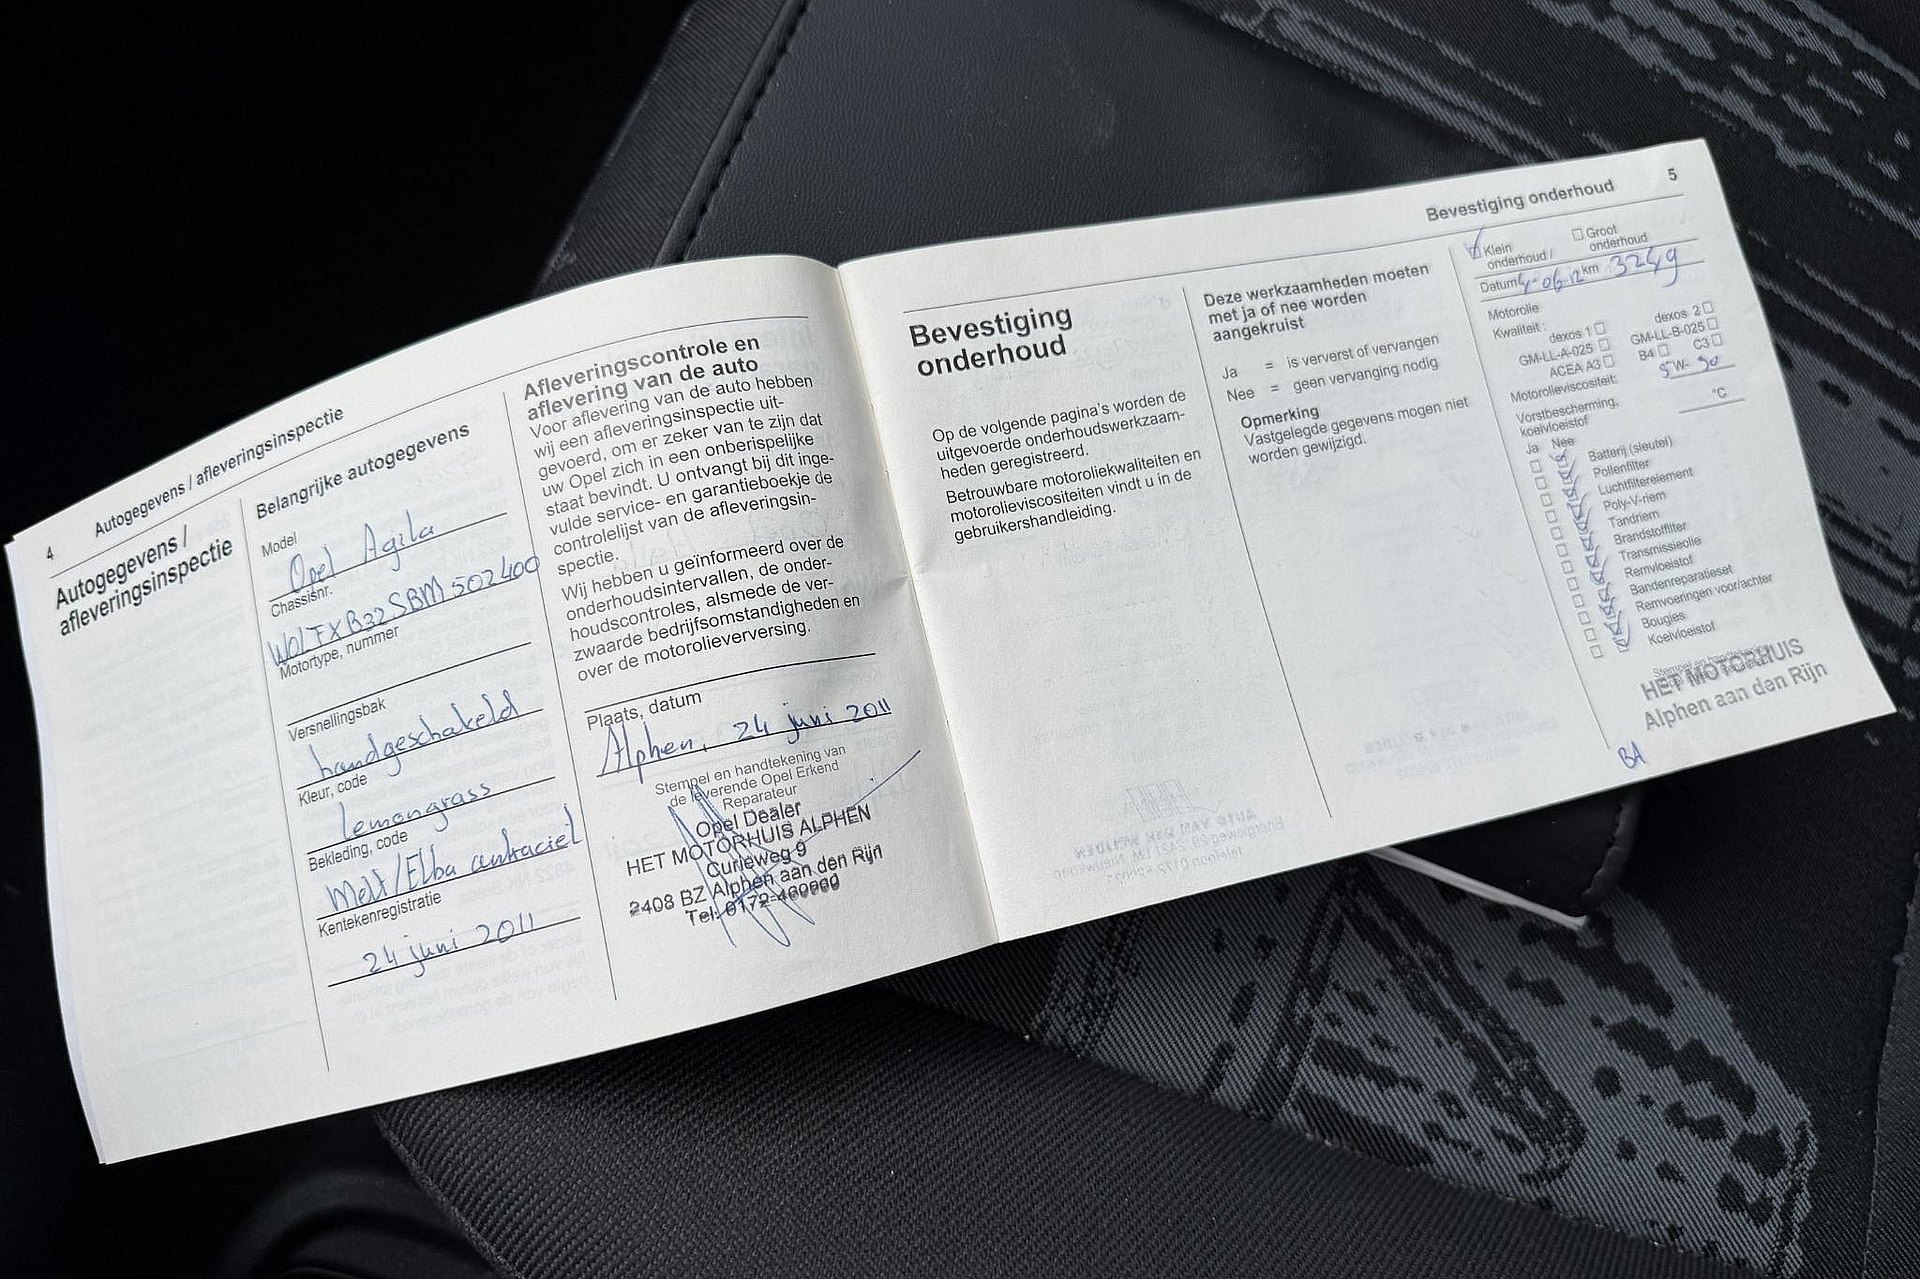 4
Autogegevens / afleveringsinspectie
Autogegevens /
afleveringsinspectie
Belangrijke autogegevens
Model
Opel Agila
Chassisnr.
W0LFXB32SBM502400
Motortype, nummer
Versnellingsbak
handgeschakeld
Kleur, code
lemongrass
Bekleding, code
Melt/Elba antraciet
Kentekenregistratie
24 juni 2011
Afleveringscontrole en
aflevering van de auto
Voor aflevering van de auto hebben
wij een afleveringsinspectie uit-
gevoerd, om er zeker van te zijn dat
uw Opel zich in een onberispelijke
staat bevindt. U ontvangt bij dit inge-
vulde service- en garantieboekje de
controlelijst van de afleveringsin-
spectie.
Wij hebben u geïnformeerd over de
onderhoudsintervallen, de onder-
houdscontroles, alsmede de ver-
zwaarde bedrijfsomstandigheden en
over de motorolieverversing.
Plaats, datum
Alphen, 24 juni 2011
Stempel en handtekening van
de leverende Opel Erkend
Reparateur
Opel Dealer
HET MOTORHUIS ALPHEN
Curieweg 9
2408 BZ Alphen aan den Rijn
Tel: 0172-460000
Bevestiging onderhoud
5
Bevestiging
onderhoud
Op de volgende pagina's worden de
uitgevoerde onderhoudswerkzaam-
heden geregistreerd.
Betrouwbare motoroliekwaliteiten en
motorolieviscositeiten vindt u in de
gebruikershandleiding.
Deze werkzaamheden moeten
met ja of nee worden
aangekruist
Ja = is ververst of vervangen
Nee = geen vervanging nodig
Opmerking
Vastgelegde gegevens mogen niet
worden gewijzigd.
Klein onderhoud / Groot onderhoud
Datum 4-06-12 km 3249
Motorolie
Kwaliteit: dexos 1 dexos 2
GM-LL-A-025 GM-LL-B-025
ACEA A3 B4 C3
Motorolieviscositeit: 5W-30
Vorstbescherming,
koelvloeistof °C
Ja Nee
Batterij (sleutel)
Pollenfilter
Luchtfilterelement
Poly-V-riem
Tandriem
Brandstoffilter
Transmissieolie
Remvloeistof
Bandenreparatieset
Remvoeringen voor/achter
Bougies
Koelvloeistof
HET MOTORHUIS
Alphen aan den Rijn
BA